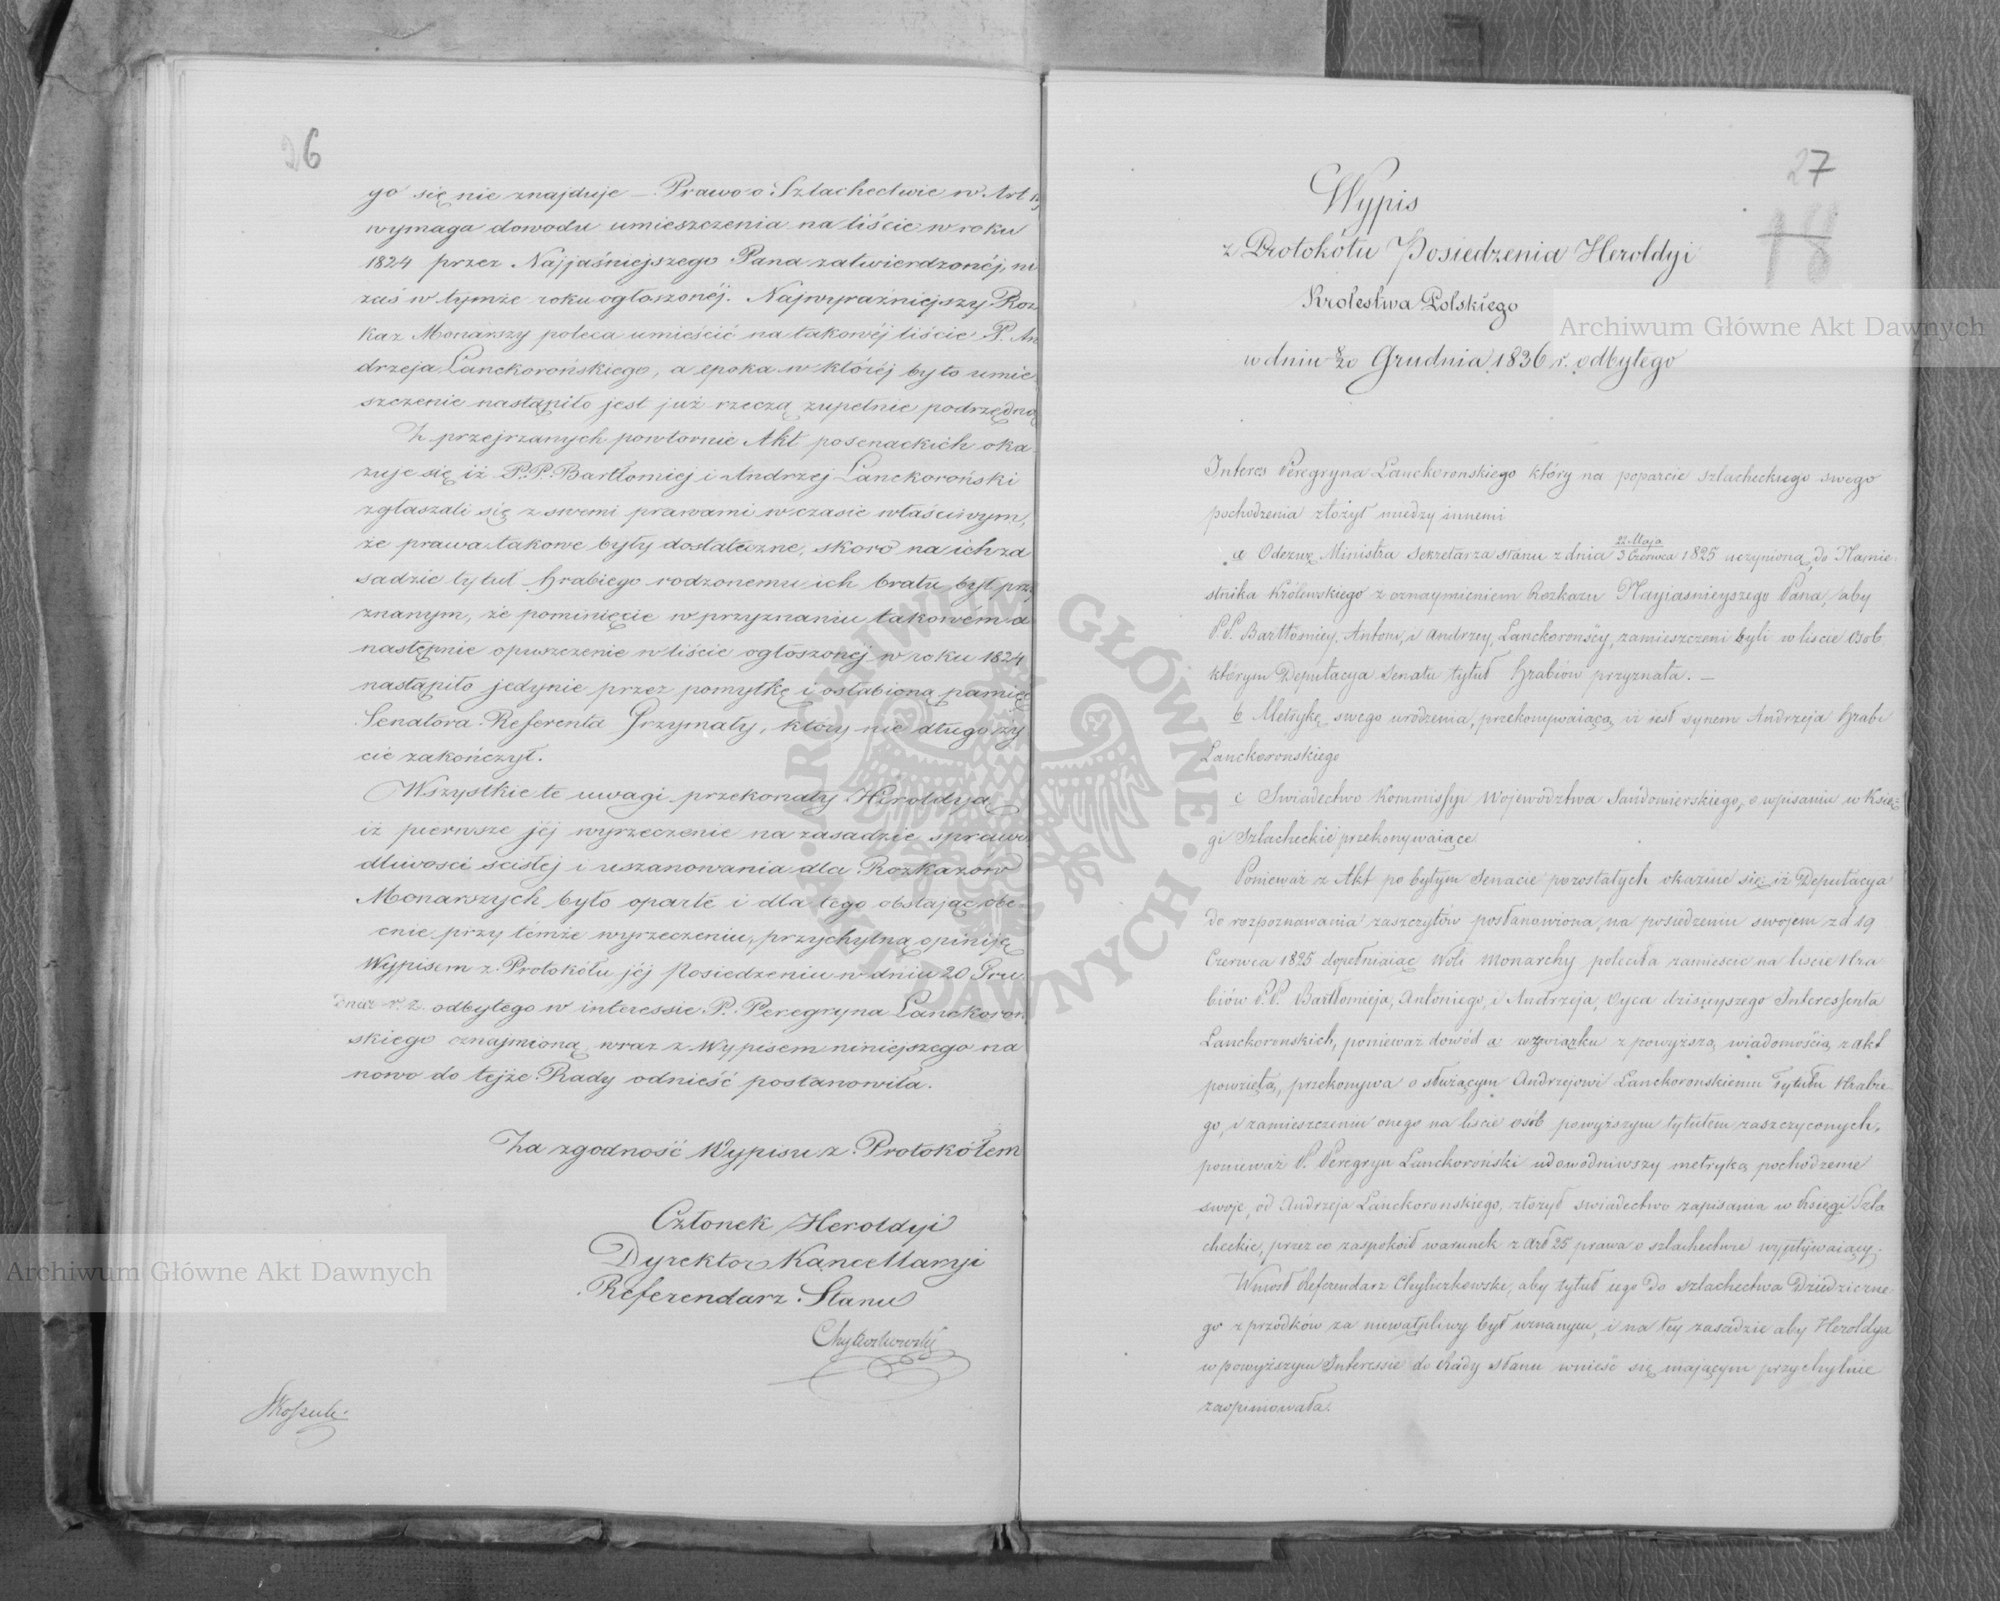 26
go się nie znajduje — Prawo o Szlachectwie w Art
wymaga dowodu umieszczenia na liście w roku
1824 przez Najjaśniejszego Pana zatwierdzonéj, nie
zaś w tymże roku ogłoszonéj. Najwyraźniejszy Roz
kaz Monarszy poleca umieścić na takowéj liście P. An
drzeja Lanckorońskiego, a epoka w któréj by to umie
szczenie nastąpiło jest już rzeczą zupełnie podrzędną
Z przejrzanych powtornie Akt posenackich oka
zuje się iż P.P. Bartłomiej i Andrzej Lanckoroński
zgłaszali się z swemi prawami w czasie właściwym,
że prawa takowe były dostateczne, skoro na ich za
sadzie tytuł Hrabiego rodzonemu ich bratu był przy
znanym, że pominięcie w przyznaniu takowem a
następnie opuszczenie w liście ogłoszonej w roku 1824
nastąpiło jedynie przez pomyłkę i osłabioną pamięć
Senatora Referenta Grzymały, który nie długo ży
cie zakończył.
Wszystkie te uwagi przekonały Heroldyą
iż pierwsze jéj wyrzeczenie na zasadzie sprawie
dliwosci scisłej i uszanowania dla Rozkazow
Monarszych było oparte i dla tego obstając obe
cnie przy témże wyrzeczeniu, przychylną opiniję
Wypisem z Protokółu jéj Posiedzeniu w dniu 20 Gru
dnia r. z. odbytego w interessie P. Peregryna Lanckoroń
skiego oznajmioną wraz z Wypisem niniejszego na
nowo do tejże Rady odnieść postanowiła.
Za zgodność Wypisu z Protokółem
Członek Heroldyi
Dyrektor Kancellaryi
Referendarz Stanu
Chyliczkowski
27
18
Wypis
z Protokółu Posiedzenia Heroldyi
Krolestwa Polskiego
w dniu 8/20 Grudnia 1836 r. odbytego
Interes Peregryna Lanckoronskiego który na poparcie szlacheckiego swego
pochodzenia złożył miedzy innemi
a Odezwę Ministra Sekretarza stánu z dnia 22 Maja / 3 Czerwca 1825 uczynioną do Namie-
stnika Królewskiego z oznaymieniem Rozkazu Nayiasnieyszego Pana, aby
P.P. Bartłómiey, Antoni, i Andrzey, Lanckoronscy, zamieszczeni byli w liscie osob
którym Deputacya Senatu tytuł Hrabiow przyznała. —
b Metrykę swego urodzenia, przekonywaiącą iż iest synem Andrzeja Hrabi
Lanckoronskiego
c Swiadectwo Kommissyi Województwa Sandomierskiego, o wpisaniu w Księ-
gi Szlacheckie przekonywaiące
Ponieważ z Akt po byłym Senacie pozostałych okazuie się iż Deputacya
do rozpoznawania zaszczytów postanowiona, na posiedzeniu swojem z d 19
Czerwca 1825 dopełniaiąc Woli Monarchy poleciła zamieścic na liscie Hra
biów P.P. Bartłomieja, Antoniego, i Andrzeja, Oyca dzisieyszego Interessenta
Lanckoronskich, ponieważ dowód a w związku z powyższą wiadomością z akt
powziętą, przekonywa o służącym Andrzejowi Lanckoronskiemu Tytułu Hrabie-
go, i zamieszczeniu onego na liscie osób powyższym tytułem zaszczyconych,
ponieważ P. Peregryn Lanckoroński udowodniwszy metryką pochodzenie
swoje, od Andrzeja Lanckoronskiego, złożył swiadectwo zapisania w Księgi Szla
checkie, przez co zaspokoił warunek z Art 25 prawa o szlachectwie wypływaiący;
Wniosł Referendarz Chyliczkowski, aby tytuł iego do szlachectwa Dziedziczne-
go z przodkow za niewątpliwy był uznanym, i na tey zasadzie aby Heroldya
w powyższym Interessie do Rady Stanu wnieść się mającym przychylnie
zaopiniowała.
Archiwum Główne Akt Dawnych
Archiwum Główne Akt Dawnych
ARCHIWUM GŁÓWNE AKT DAWNYCH